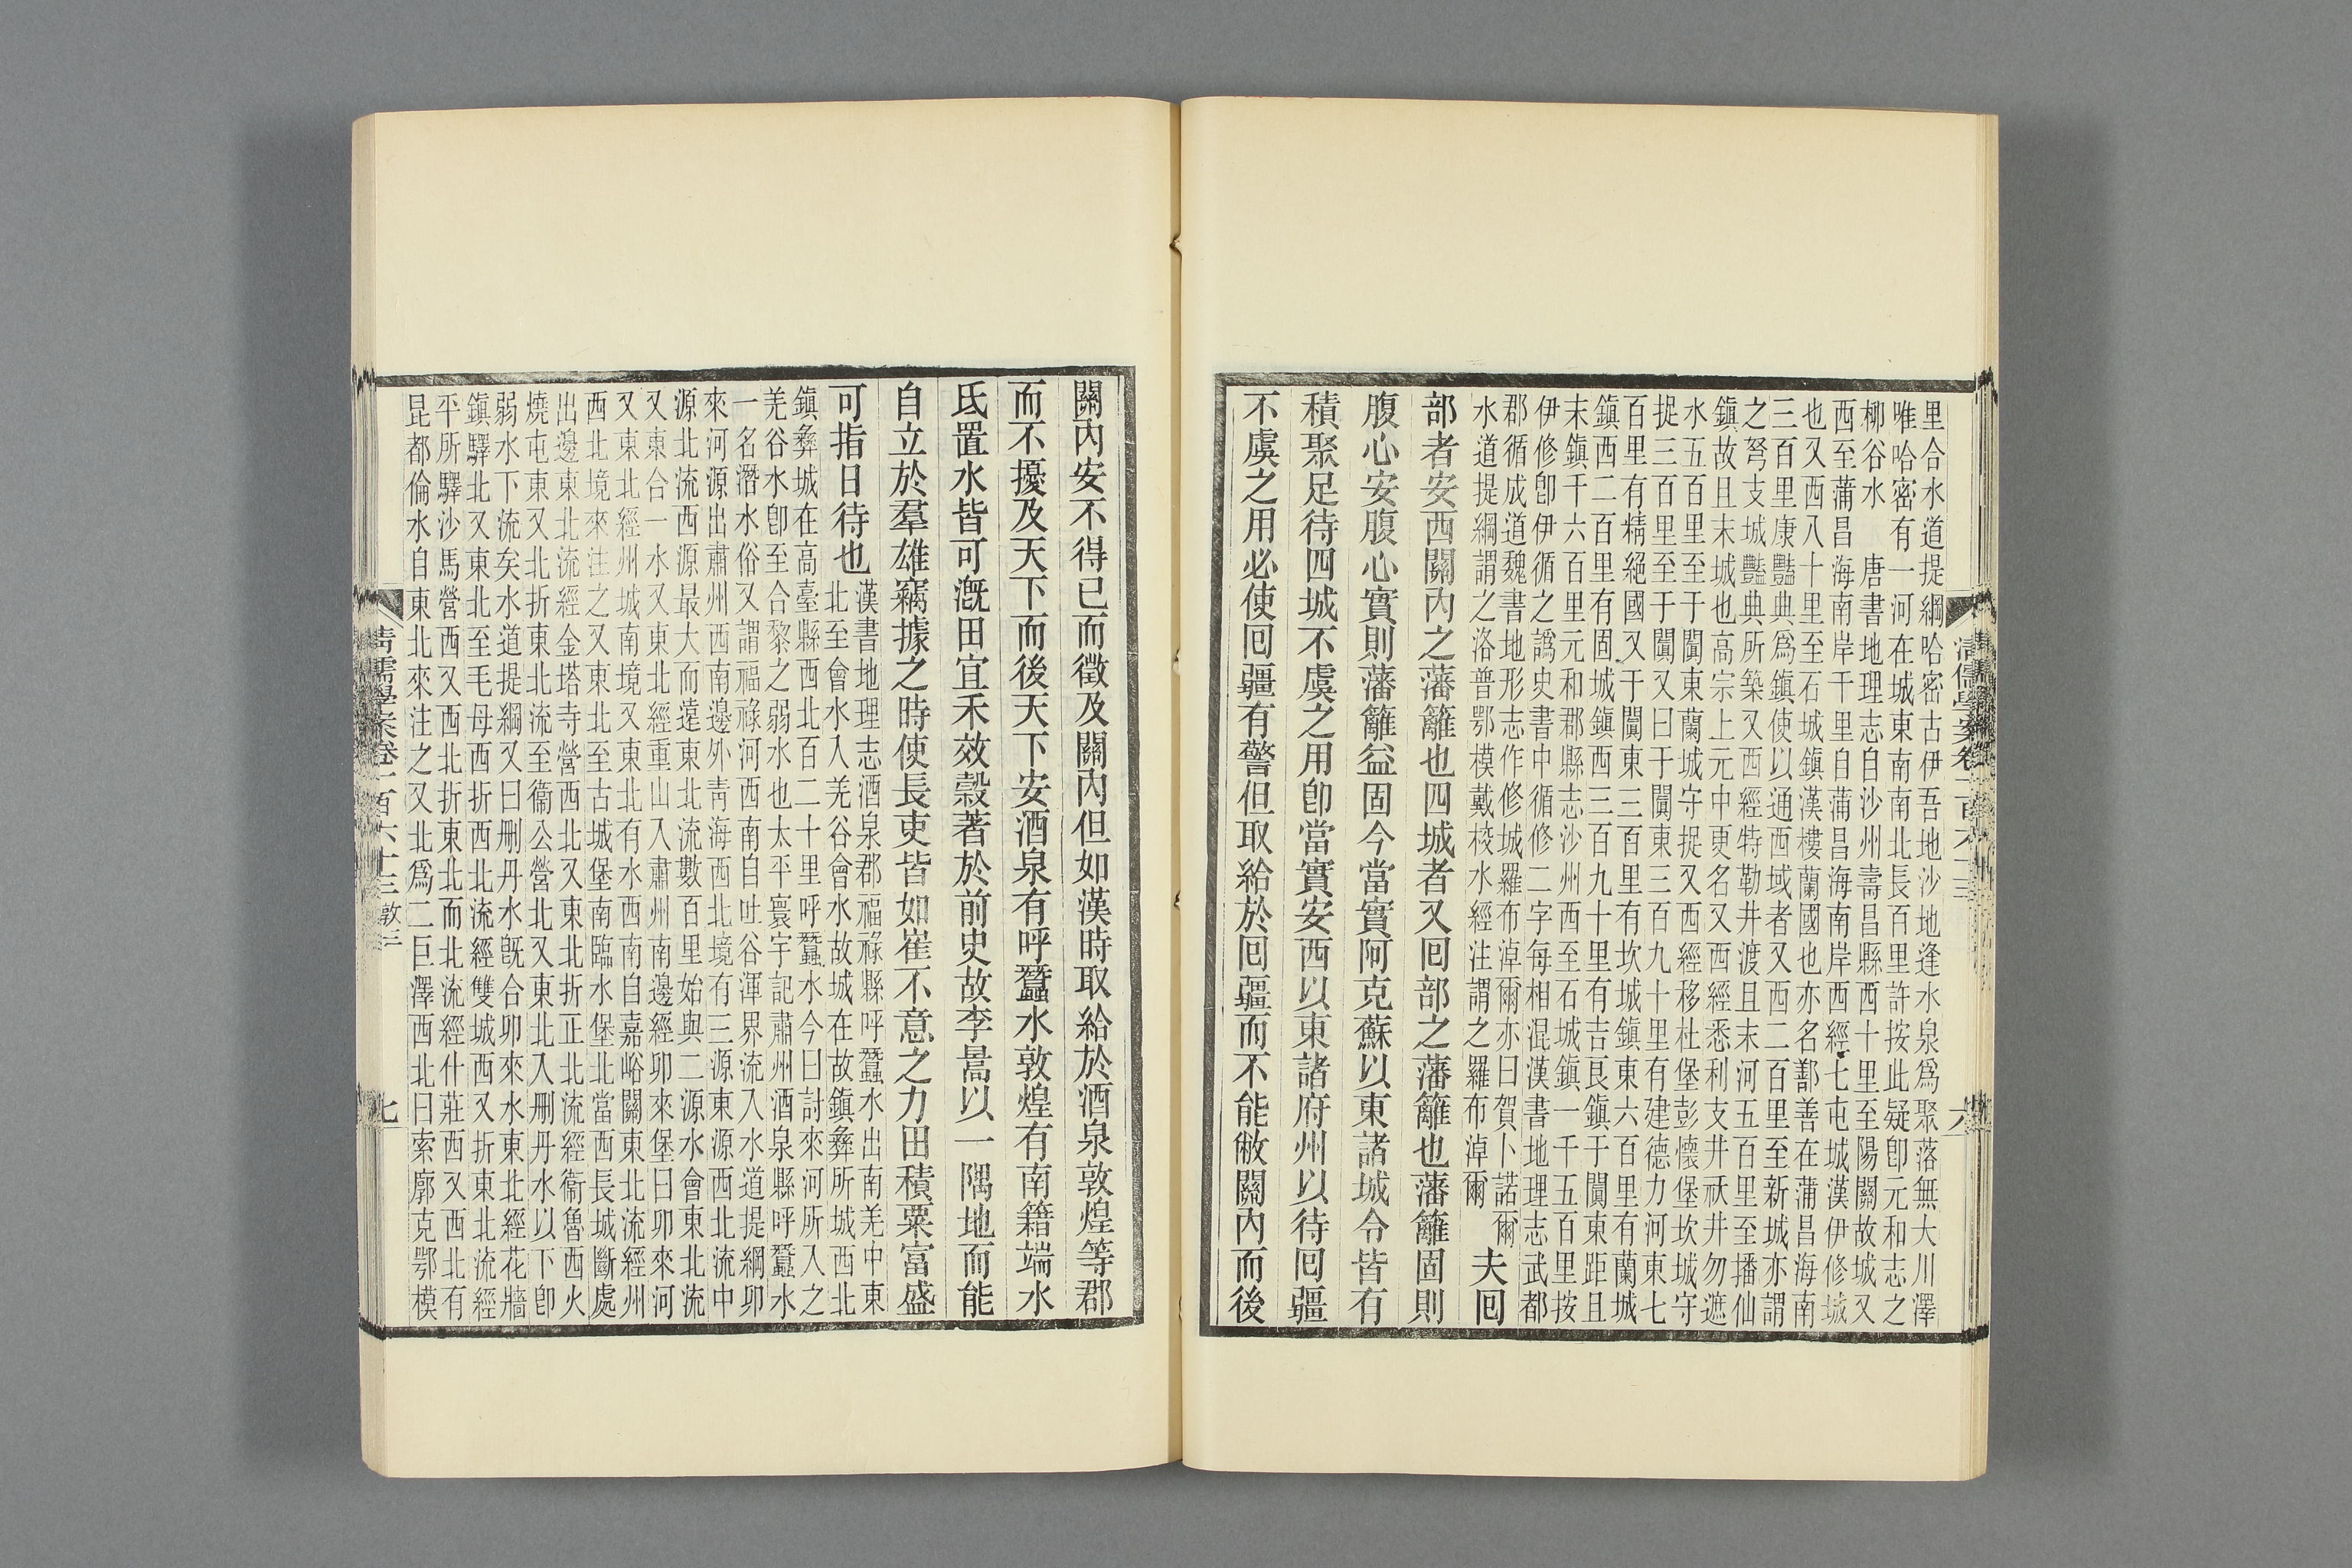 里合水道提綱哈密古伊吾地沙地逢水泉爲聚落無大川澤
唯哈密有一河在城東南南北長百里許按此疑卽元和志之
柳谷水　唐書地理志自沙州壽昌縣西十里至陽關故城又
西至蒲昌海南岸千里自蒲昌海南岸西經七屯城漢伊修城
也又西八十里至石城鎮漢樓蘭國也亦名鄯善在蒲昌海南
三百里康豔典爲鎮使以通西域者又西二百里至新城亦謂
之弩支城豔典所築又西經特勒井渡且末河五百里至播仙
鎮故且末城也高宗上元中更名又西經悉利支井祆井勿遮
水五百里至于闐東蘭城守捉又西經移杜堡彭懷堡坎城守
捉三百里至于闐又曰于闐東三百九十里有建德力河東七
百里有精絕國又于闐東三百里有坎城鎮東六百里有蘭城
鎮西二百里有固城鎮西三百九十里有吉良鎮于闐東距且
末鎮千六百里元和郡縣志沙州西至石城鎮一千五百里按
伊修卽伊循之譌史書中循修二字每相混漢書地理志武都
郡循成道魏書地形志作修城羅布淖爾亦曰賀卜諾爾
水道提綱謂之洛普鄂模戴校水經注謂之羅布淖爾
夫回
部者安西關內之藩籬也四城者又回部之藩籬也藩籬固則
腹心安腹心實則藩籬益固今當實阿克蘇以東諸城令皆有
積聚足待四城不虞之用卽當實安西以東諸府州以待回疆
不虞之用必使回疆有警但取給於回疆而不能敝關內而後
清儒學案卷一百六十三
六
關內安不得已而徵及關內但如漢時取給於酒泉敦煌等郡
而不擾及天下而後天下安酒泉有呼蠶水敦煌有南籍端水
氐置水皆可漑田宜禾效穀著於前史故李暠以一隅地而能
自立於羣雄竊據之時使長吏皆如崔不意之力田積粟富盛
可指日待也
漢書地理志酒泉郡福祿縣呼蠶水出南羌中東
北至會水入羌谷會水故城在故鎮彝所城西北
鎮彝城在高臺縣西北百二十里呼蠶水今曰討來河所入之
羌谷水卽至合黎之弱水也太平寰宇記肅州酒泉縣呼蠶水
一名潛水俗又謂福祿河西南自吐谷渾界流入水道提綱卯
來河源出肅州西南邊外青海西北境有三源東源西北流中
源北流西源最大而遠東北流數百里始與二源水會東北流
又東合一水又東北經重山入肅州南邊經卯來堡曰卯來河
又東北經州城南境又東北有水西南自嘉峪關東北流經州
西北境來注之又東北至古城堡南臨水堡北當西長城斷處
出邊東北流經金塔寺營西北又東北折正北流經衞魯西火
燒屯東又北折東北流至衞公營北又東北入刪丹水以下卽
弱水下流矣水道提綱又曰刪丹水旣合卯來水東北經花牆
鎮驛北又東北至毛毋西折西北流經雙城西又折東北流經
平所驛沙馬營西又西北折東北而北流經什莊西又西北有
昆都倫水自東北來注之又北爲二巨澤西北曰索廓克鄂模
清儒學案卷一百六十三 敦三
七